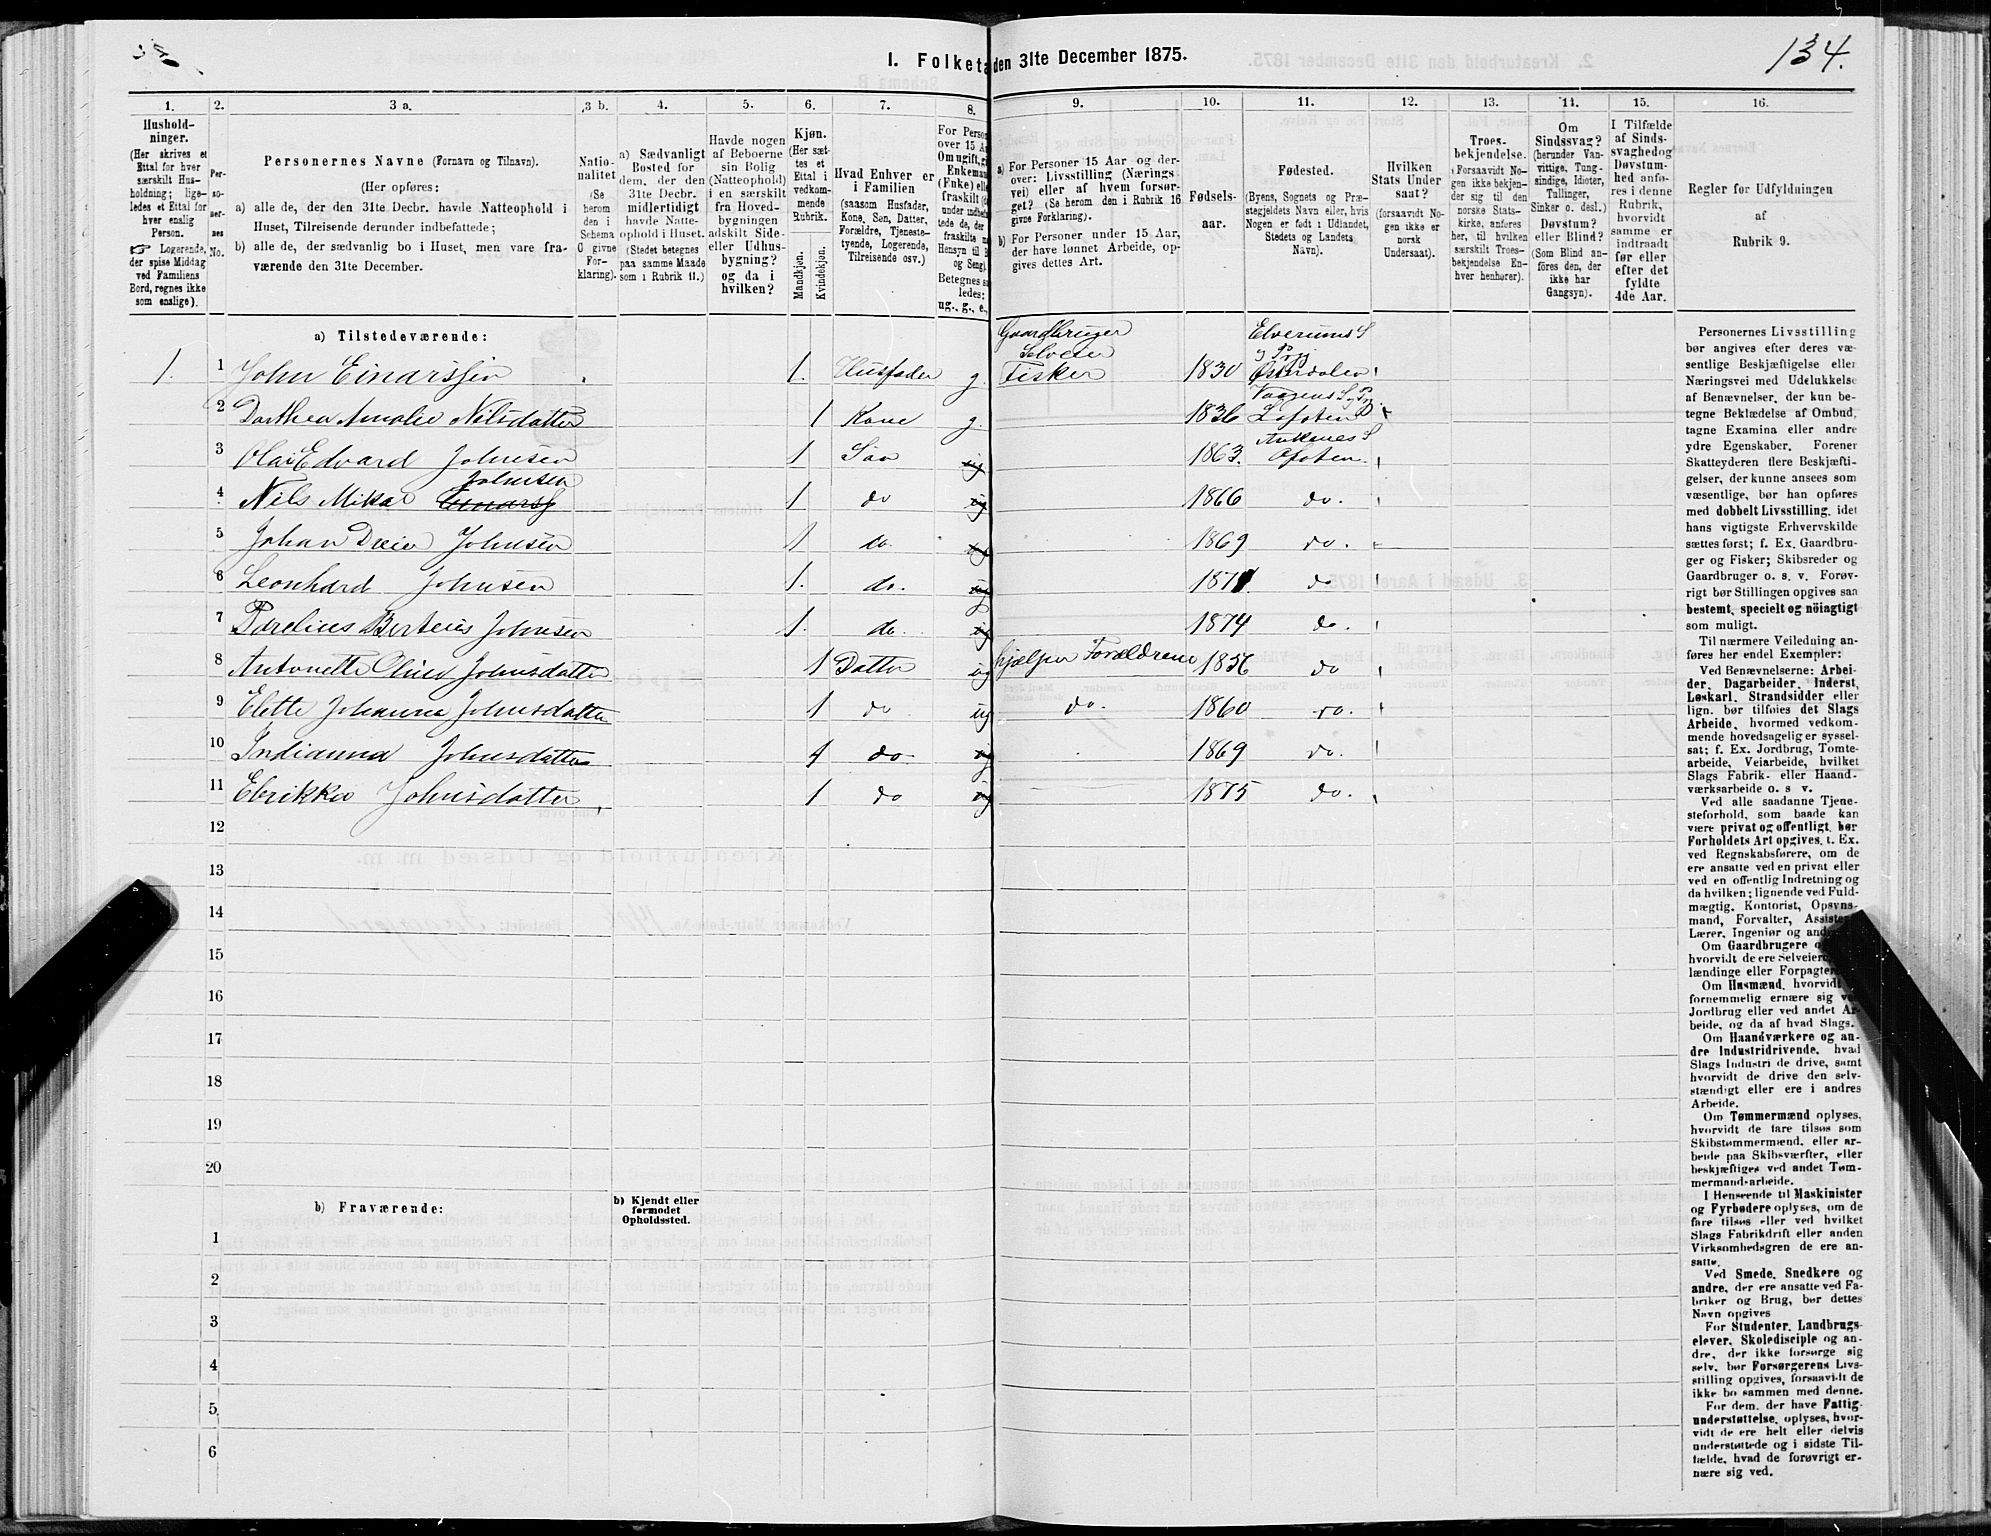 134.
1. Folketæ den 31te December 1875.
1. 2. 3 a. 3 b. 4. 5. 6. 7. 8. 9. 10. 11. 12. 13. 14. 15. 16.
Hushold-
ninger.
(Her skrives et
Ettal for hver
særskilt Hus-
holdning; lige-
ledes et Ettal for
hver enslig
Person.
☞ Logerende,
der spise Middag
ved Familiens
Bord, regnes ikke
som enslige).
Per-
so-
ner-
nes
No.
Personernes Navne (Fornavn og Tilnavn).
(Her opføres:
a) alle de, der den 31te Decbr. havde Natteophold i
Huset, Tilreisende derunder indbefattede;
b) alle de, der sædvanlig bo i Huset, men vare fra-
værende den 31te December.
Natio-
nalitet
(Se
herom
den i
Schema
O givne
For-
klaring).
a) Sædvanligt
Bosted for
dem, der den
31te Decbr.
midlertidigt
havde Natte-
ophold i Huset.
(Stedet betegnes
paa samme Maade
som i Rubrik 11.)
Havde nogen
af Beboerne
sin Bolig
(Natteophold)
i en særskilt
fra Hoved-
bygningen
adskilt Side-
eller Udhus-
bygning?
og da i
hvilken?
Kjøn.
(Her sæt-
tes et
Ettal i
vedkom-
mende
Rubrik.
Mandkjøn.
Kvindekjøn.
Hvad Enhver er
i Familien
(saasom Husfader,
Kone, Søn, Datter,
Forældre, Tjeneste-
tyende, Logerende,
Tilreisende osv.)
For Perso
over 15 A
Om ugift, gi
Enkema
(Enke) elle
fraskilt (d
under indbef
tede de, der
fraskilte m
Hensyn til B
og Seng)
Betegnes s
ledes:
ug., g., e.,
a) For Personer 15 Aar og der-
over: Livsstilling (Nærings-
vei) eller af hvem forsør-
get? (Se herom den i Rubrik 16
givne Forklaring).
b) For Personer under 15 Aar,
der have lønnet Arbeide, op-
gives dettes Art.
Fødsels-
aar.
Fødested.
(Byens, Sognets og Præ-
stegjeldets Navn eller, hvis
Nogen er født i Udlandet,
Stedets og Landets
Navn).
Hvilken
Stats Under
saat?
(forsaavidt No-
gen ikke er
norsk
Undersaat).
Troes-
bekjendelse.
(Forsaavidt No-
gen ikke bekjen-
der sig til den
norske Stats-
kirke, anføres
her, til hvilken
særskilt Troes-
bekjendelse En-
hver henhører).
Om
Sindssvag?
(herunder Van-
vittige, Tung-
sindige, Idioter,
Tullinger,
Sinker o. desl.)
Døvstum?
eller Blind?
(Som Blind an-
føres den, der
ikke har
Gangsyn).
I Tilfælde
af Sinds-
svaghed og
Døvstum-
hed anfø-
res i denne
Rubrik,
hvorvidt
samme er
indtraadt
før eller
efter det
fyldte
4de Aar.
Regler for Udfyldningen
af
Rubrik 9.
a) Tilstedeværende:
Gaardbruger Elverums S
Selveier og Prg
1. 1 John Einarssen 1. Husfader g. Fisker 1830 Østerdalen
Vaagens S og P
2 Dorthea Amalie Nilsdatter 1 Kone g. 1836 Lofoten
Ankenes S
3 Olai Edvard Johnsen 1 Søn ug 1863. Ofoten
Johnsen
4 Nils Mikal Einarss 1 do ug 1866 do.
5 Johan Dreier Johnsen 1 do. ug 1869 do.
6 Leonhard Johnsen 1. do. ug 1871. do
7 Parelius Berteus Johnsen 1. do. ug 1874 do.
8 Antonette Oline Johnsdatter 1 Datter ug hjælper Forældrene 1856 do
9 Elette Johanna Johnsdatter 1 do ug do. 1860 do.
10 Indianna Johnsdatter 1 do ug 1869 do.
11 Elrikka Johnsdatter 1 do ug 1875 do.
12
13
14
15
16
17
18
19
20
b) Fraværende:
b) Kjendt eller
formodet
Opholdssted.
1
2
3
4
5
6
Personernes Livsstilling
bør angives efter deres væ-
sentlige Beskjæftigelse eller
Næringsvei med Udelukkelse
af Benævnelser, der kun be-
tegne Beklædelse af Ombud,
tagne Examina eller andre
ydre Egenskaber. Forener
Skatteyderen flere Beskjæfti-
gelser, der kunne ansees som
væsentlige, bør han opføres
med dobbelt Livsstilling, idet
hans vigtigste Erhvervskilde
sættes først; f. Ex. Gaardbru-
ger og Fisker; Skibsreder og
Gaardbruger o. s. v. Forøv-
rigt bør Stillingen opgives saa
bestemt, specielt og nøiagtigt
som muligt.
Til nærmere Veiledning an-
føres her endel Exempler:
Ved Benævnelserne: Arbei-
der, Dagarbeider, Inderst,
Løskarl, Strandsidder eller
lign. bør tilføies det Slags
Arbeide, hvormed vedkom-
mende hovedsagelig er syssel-
sat; f. Ex. Jordbrug, Tomte-
arbeide, Veiarbeide, hvilket
Slags Fabrik- eller Haand-
værksarbeide o. s v.
Ved alle saadanne Tjene-
steforhold, som baade kan
være privat og offentligt, bør
Forholdets Art opgives, t. Ex.
ved Regnskabsførere, om de
ere ansatte ved en privat eller
ved en offentlig Indretning og
da hvilken; lignende ved Fuld-
mægtig, Kontorist, Opsyns-
mand, Forvalter, Assiste
Lærer, Ingeniør og and
Om Gaardbrugere o
hvorvidt de ere Selveiere,
lændinge eller Forpagtere
Om Husmænd, hvorvidt
fornemmelig ernære sig ve
Jordbrug eller ved andet Ar-
beide, og da af hvad Slags.
Om Haandværkere og an-
dre Industridrivende, hvad
Slags Industri de drive, samt
hvorvidt de drive den selv-
stændigt eller ere i andres
Arbeide.
Om Tømmermænd oplyses,
hvorvidt de fare tilsøs som
Skibstømmermænd, eller ar-
beide paa Skibsværfter, eller
beskjæftiges ved andet Tøm-
mermand-arbeide.
I Henseende til Maskinister
og Fyrbødere oplyses, om de
fare tilsøs eller ved hvilket
Slags Fabrikdrift eller anden
Virksomhedsgren de ere an-
satte.
Ved Smede, Snedkere og
andre, der ere ansatte ved Fa-
briker og Brug, bør dettes
Navn opgives
For Studenter, Landbrugs-
elever, Skoledisciple og an-
dre, der ikke forsørge sig
selv, bør Forsørgerens Livs-
stilling opgives, forsaavidt de
ikke bo sammen med denne.
For dem, der have Fattig-
understøttelse, oplyses, hvor-
vidt de ere helt eller delvis
understøttede og i sidste Til-
fælde, hvad de forøvrigt er-
nære sig ved.